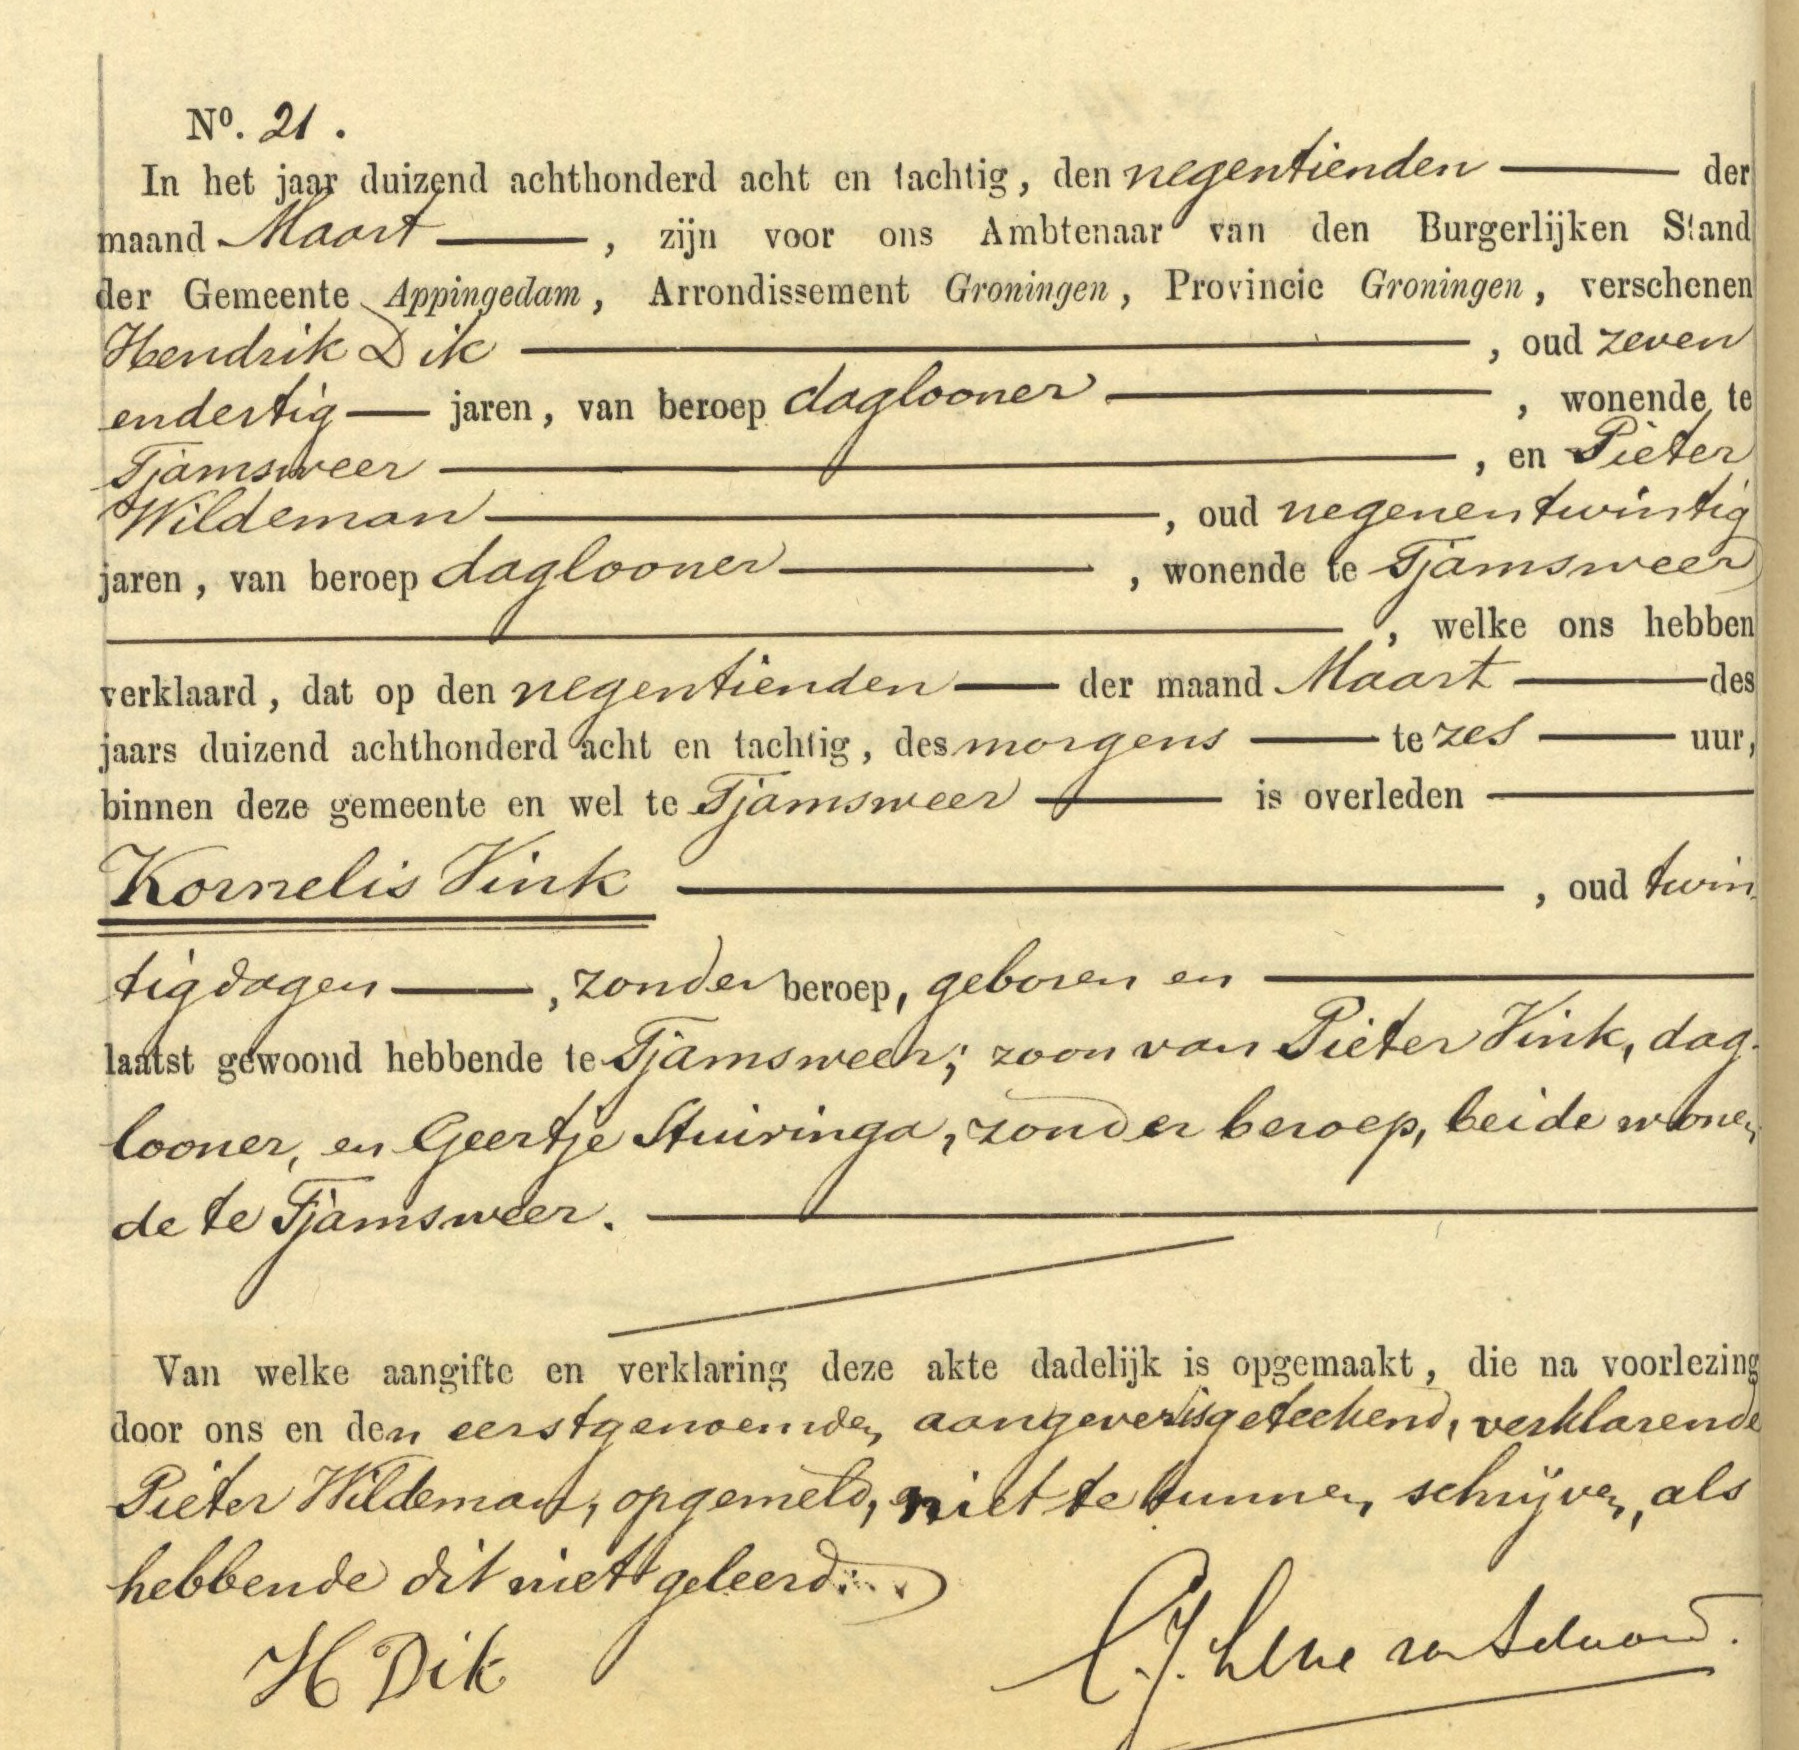 Nº. 21.
In het jaar duizend achthonderd acht en tachtig, den negentienden der
maand Maart, zijn voor ons Ambtenaar van den Burgerlijken Stand
der Gemeente Appingedam, Arrondissement Groningen, Provincie Groningen, verschenen
Hendrik Dik, oud zeven
endertig jaren, van beroep daglooner, wonende te
Tjamsweer, en Pieter
Wildeman, oud negenentwintig
jaren, van beroep daglooner, wonende te Tjamsweer
, welke ons hebben
verklaard, dat op den negentienden der maand Maart des
jaars duizend achthonderd acht en tachtig, des morgens te zes uur,
binnen deze gemeente en wel te Tjamsweer is overleden
Kornelis Vink, oud twin
tig dagen, zonder beroep, geboren en
laatst gewoond hebbende te Tjamsweer; zoon van Pieter Vink, dag-
looner, en Geertje Stuivinga, zonder beroep, beide wonen
de te Tjamsweer.
Van welke aangifte en verklaring deze akte dadelijk is opgemaakt, die na voorlezing
door ons en den eerstgenoemden aangever is geteekend, verklarende
Pieter Wildeman, opgemeld, niet te kunnen schrijven, als
hebbende dit niet geleerd.
H Dik